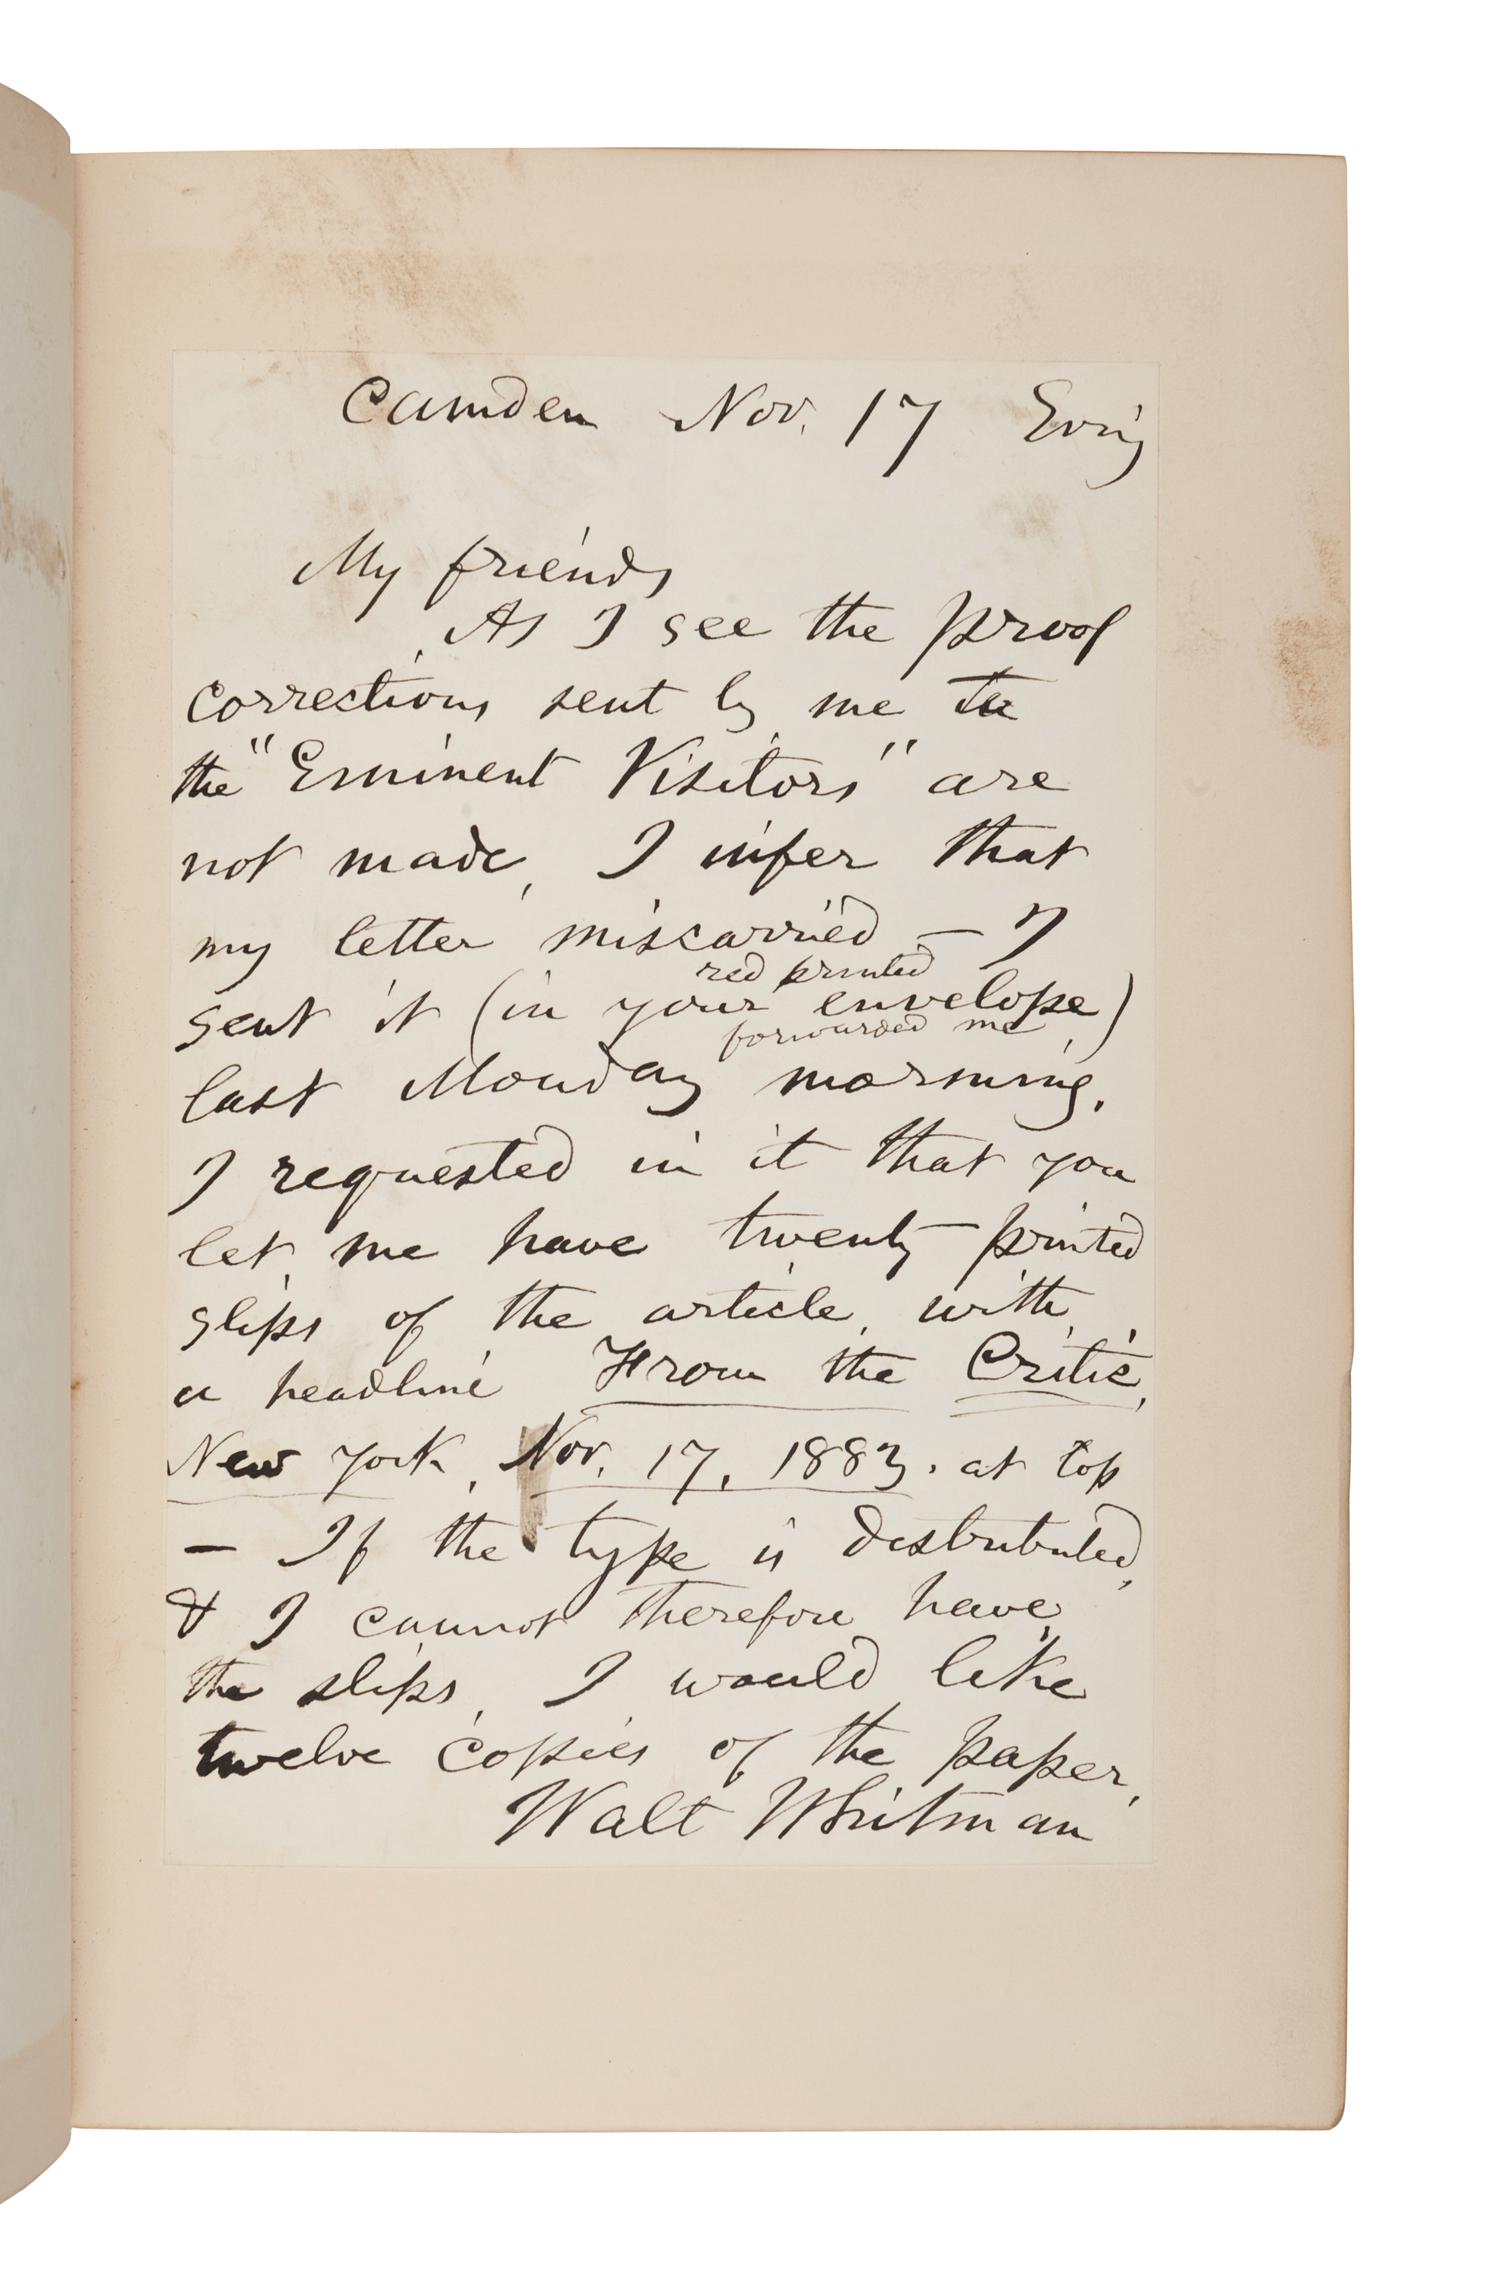 Camden Nov. 17 Ev'ng
My friends
As I see the proof
corrections sent by me to
the "Eminent Visitors" are
not made, I infer that
my letter miscarried — I
red printed
sent it (in your envelope)
forwarded me
last Monday morning.
I requested in it that you
let me have twenty printed
slips of the article, with
a headline From the Critic,
New York, Nov. 17, 1883. at top
— If the type is distributed,
& I cannot therefore have
the slips, I would like
twelve copies of the paper,
Walt Whitman